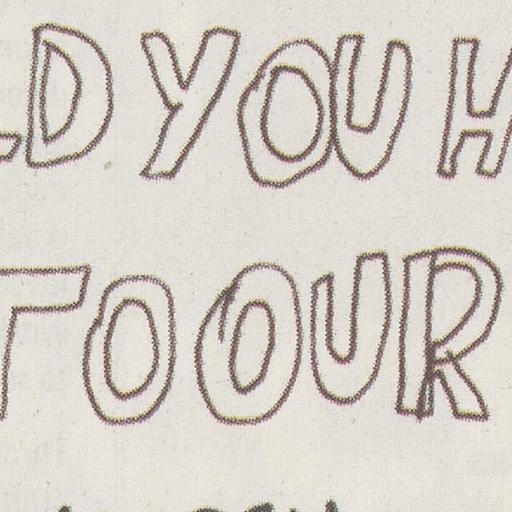 LD YOU H
TO OUR